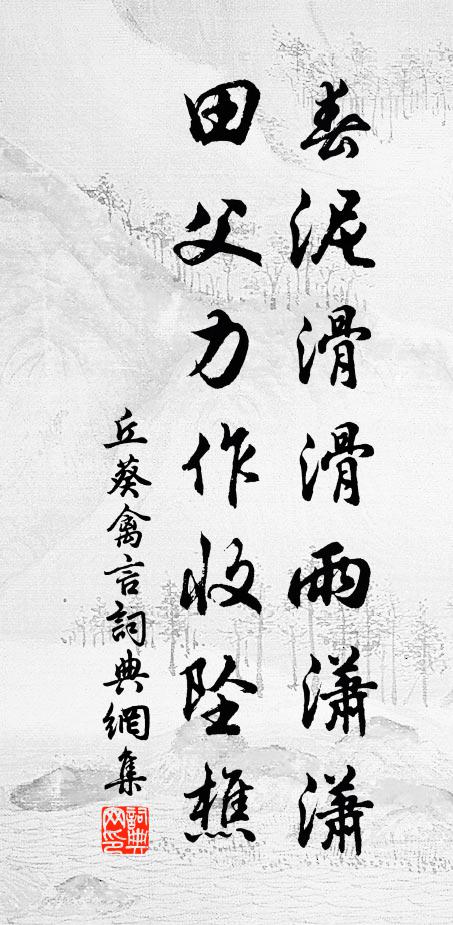 春泥滑滑雨瀟瀟
田父力作收墜樵
丘葵禽言詞典網集
詞典网印